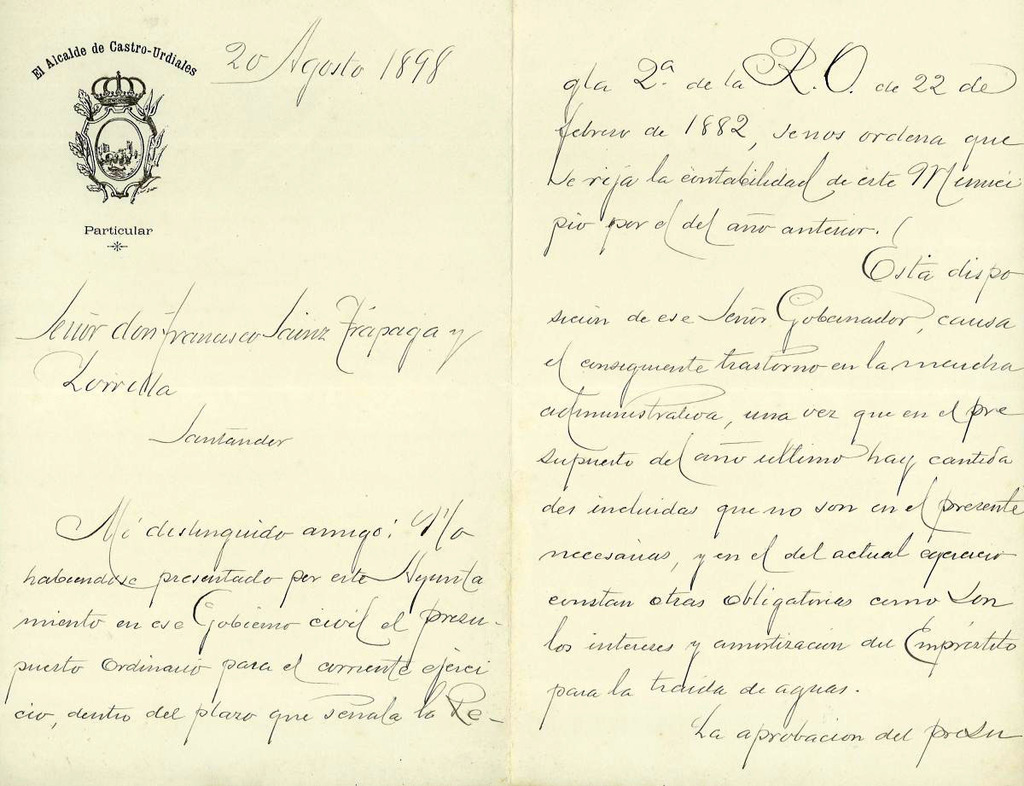 El Alcalde de Castro-Urdiales
Particular
20 Agosto 1898
Señor don Francisco Sainz Trápaga y
Zorrilla
Santander
Mi distinguido amigo: No
habiendose presentado por este Ayunta
miento en ese Gobierno civil el presu-
puesto Ordinario para el corriente ejerci
cio, dentro del plazo que señala la Re-
gla 2ª de la R. O. de 22 de
febrero de 1882, se nos ordena que
se rija la contabilidad de este Munici
pio por el del año anterior.
Esta dispo
sición de ese Señor Gobernador, causa
el consiguiente trastorno en la marcha
administrativa, una vez que en el pre
supuesto del año ultimo hay cantida
des incluidas que no son en el presente
necesarias, y en el del actual ejercicio
constan otras obligatorias como son
los intereses y amortizacion del Empréstito
para la traida de aguas.
La aprobacion del presu